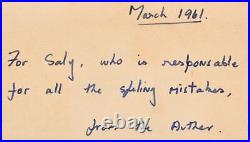 March 1961.
For Saly, who is responsable
for all the spleling mistakes,
from the Auther.